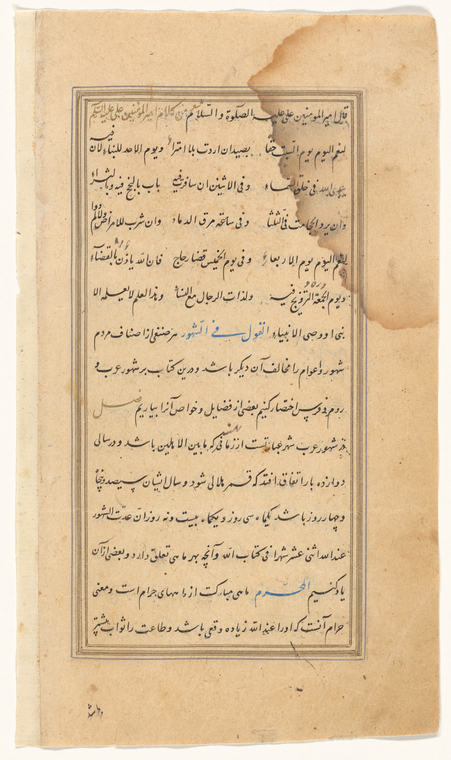 قال امیر المومنین علی علیه الصلوة والسلام
لنعم الیوم یوم السبت حقا بصید ان اردت بلا امتراء ویوم الاحد للبناء لان فیه
فی خلق السماء وفی الاثنین ان سافرت فیه
وان یرد الحجامة فی الثلثا وفی ساعته هرق الدماء وان شرب
الیوم یوم الاربعاء وفی یوم الخمیس قضاء حاج فان الله یاذن بالقضاء
ویوم الجمعة التزویج فیه ولذات الرجال مع النساء وهذا العلم لا یعلمه الا
نبی او وصی الانبیاء القول فی الشهور هر صنفی از اصناف مردم
شهور واعوام را مخالف آن دیگر باشد ودرین کتاب بر شهور عرب و
روم وفرس اختصار کنیم بعضی از فضایل وخواص آنرا بیاریم فصل
در شهور عرب شهر عبارتست از زمانی که ما بین الاهلین باشد ودر سالی
دوازده بار اتفاق افتد که قمر هلالی شود وسال ایشان سیصد وپنجاه
وچهار روز باشد یکماه سی روز ویکماه بیست ونه روز ان عدة الشهور
عند الله اثنی عشر شهرا فی کتاب الله وآنچه بهر ماهی تعلق دارد وبعضی از آن
یاد کنیم المحرم ماهی مبارکست از ماههای حرام است ومعنی
حرام آنست که او را عند الله زیاده وقعی باشد وطاعت را ثواب بیشتر